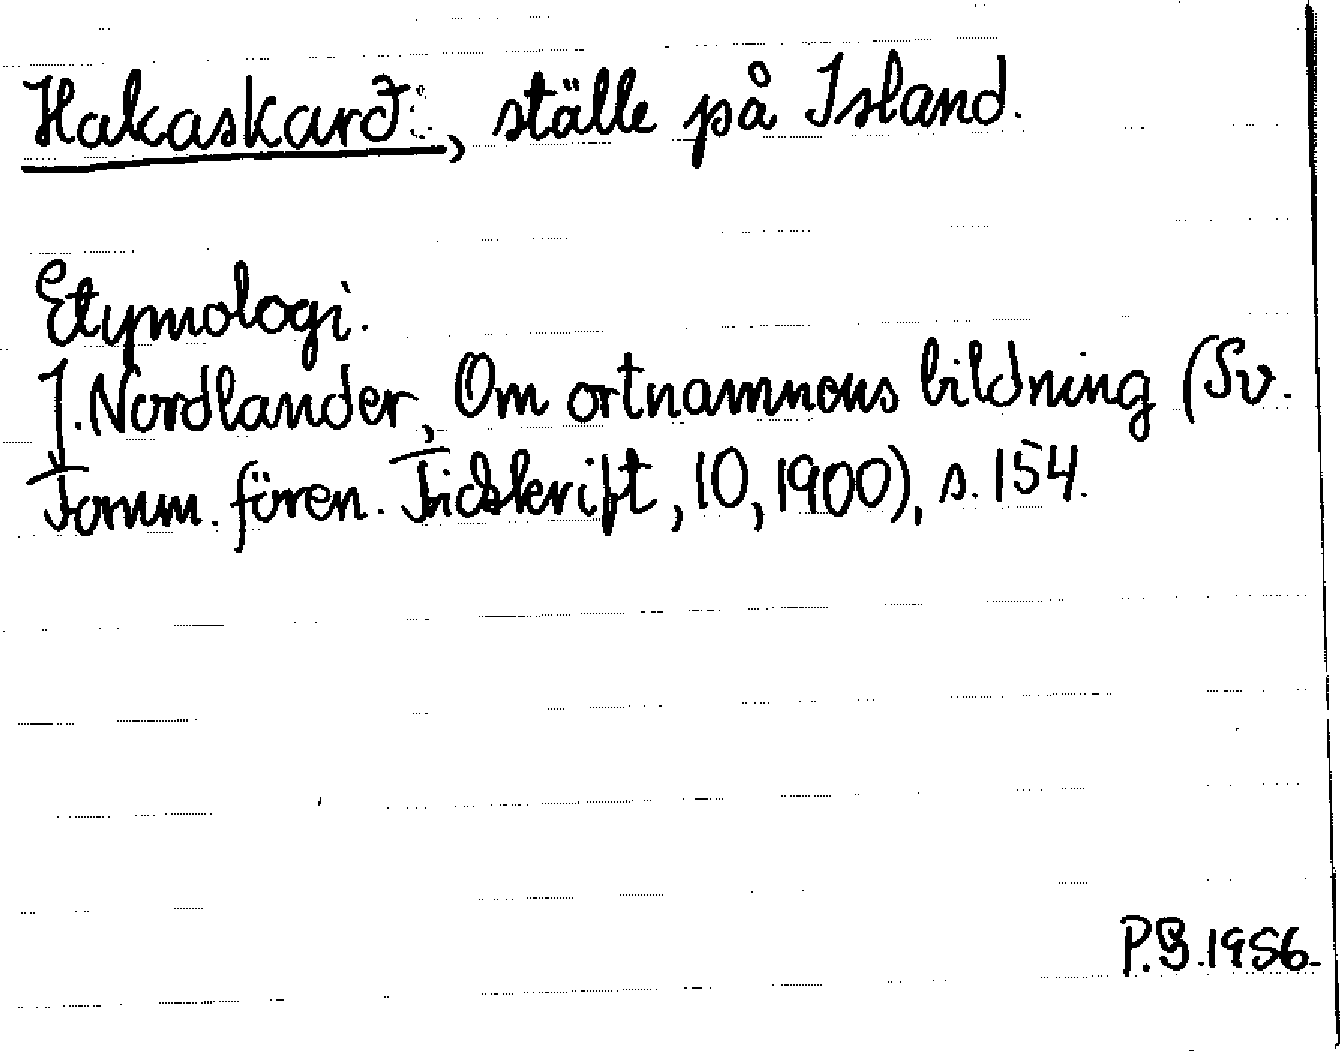 Hakaskarð, ställe på Island.
Etymologi.
J. Nordlander, Om ortnamnens bildning (Sv.
Fornm. fören. Tidskrift, 10, 1900), s. 154.
P.B. 1956.